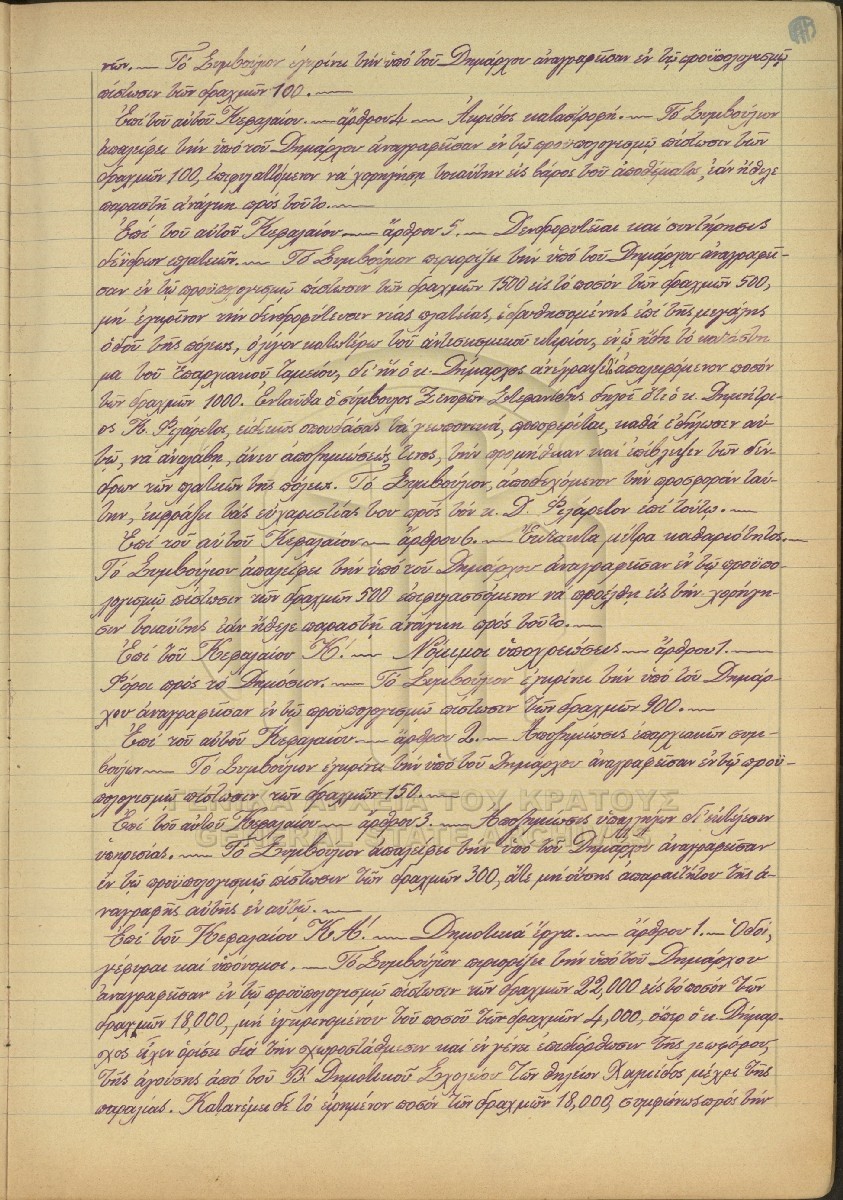 νῶν. — Τὸ Συμβούλιον ἐγκρίνει τὴν ὑπὸ τοῦ Δημάρχου ἀναγραφεῖσαν ἐν τῷ προϋπολογισμῷ
πίστωσιν τῶν δραχμῶν 100. —
Ἐπὶ τοῦ αὐτοῦ Κεφαλαίου. — ἄρθρου 4 — Ἀκρίδος καταστροφή. — Τὸ Συμβούλιον
ἀπαλείφει τὴν ὑπὸ τοῦ Δημάρχου ἀναγραφεῖσαν ἐν τῷ προϋπολογισμῷ πίστωσιν τῶν
δραχμῶν 100, ἐπιφυλαττόμενον νὰ χορηγήσῃ τοιαύτην εἰς βάρος τοῦ ἀποθέματος, ἐὰν ἤθελε
παραστῆ ἀνάγκη πρὸς τοῦτο. —
Ἐπὶ τοῦ αὐτοῦ Κεφαλαίου. — ἄρθρου 5. — Δενδροφυτεῖαι καὶ συντήρησις
δένδρων πλατειῶν. — Τὸ Συμβούλιον περιορίζει τὴν ὑπὸ τοῦ Δημάρχου ἀναγραφεῖ-
σαν ἐν τῷ προϋπολογισμῷ πίστωσιν τῶν δραχμῶν 1500 εἰς τὸ ποσὸν τῶν δραχμῶν 500,
μὴ ἐγκρῖνον τὴν δενδροφύτευσιν νέας πλατείας, ἐπὶ τῆς μεγάλης
ὁδοῦ τῆς πόλεως, ὀλίγον κατωτέρω τοῦ κτιρίου, ἐν ᾧ ἤδη τὸ κατάστη
μα τοῦ Ἐπαρχιακοῦ Ταμείου, δι' ἣν ὁ κ. Δήμαρχος ἀνέγραψε τὸ ἀπαλειφόμενον ποσὸν
τῶν δραχμῶν 1000. Ἐνταῦθα ὁ σύμβουλος Ξενοφῶν Στεφανίδης δηλοῖ ὅτι ὁ κ. Δημήτρι-
ος Κ. Φιλάρετος, εἰδικῶς σπουδάσας τὰ γεωπονικά, προσφέρεται, καθὰ ἐδήλωσεν αὐ-
τῷ, νὰ ἀναλάβῃ, ἄνευ ἀποζημιώσεώς τινος, τὴν προμήθειαν καὶ ἐπίβλεψιν τῶν δέν-
δρων τῶν πλατειῶν τῆς πόλεως. Τὸ Συμβούλιον, ἀποδεχόμενον τὴν προσφορὰν ταύ-
την, ἐκφράζει τὰς εὐχαριστίας του πρὸς τὸν κ. Δ. Φιλάρετον ἐπὶ τούτῳ. —
Ἐπὶ τοῦ αὐτοῦ Κεφαλαίου — ἄρθρου 6. — Ἔκτακτα μέτρα καθαριότητος. —
Τὸ Συμβούλιον ἀπαλείφει τὴν ὑπὸ τοῦ Δημάρχου ἀναγραφεῖσαν ἐν τῷ προϋπο-
λογισμῷ πίστωσιν τῶν δραχμῶν 500 ἐπιφυλασσόμενον νὰ προέλθῃ εἰς τὴν χορήγη-
σιν τοιαύτης ἐὰν ἤθελε παραστῆ ἀνάγκη πρὸς τοῦτο. —
Ἐπὶ τοῦ Κεφαλαίου Κ! — Νόμιμοι ὑποχρεώσεις — ἄρθρου 1. —
Φόροι πρὸς τὸ Δημόσιον. — Τὸ Συμβούλιον ἐγκρίνει τὴν ὑπὸ τοῦ Δημάρ-
χου ἀναγραφεῖσαν ἐν τῷ προϋπολογισμῷ πίστωσιν τῶν δραχμῶν 900. —
Ἐπὶ τοῦ αὐτοῦ Κεφαλαίου. — ἄρθρου 2. — Ἀποζημίωσις ἐπαρχιακῶν συμ-
βούλων — Τὸ Συμβούλιον ἐγκρίνει τὴν ὑπὸ τοῦ Δημάρχου ἀναγραφεῖσαν ἐν τῷ προϋ-
πολογισμῷ πίστωσιν τῶν δραχμῶν 150. —
ΓΕΝΙΚΑ ΑΡΧΕΙΑ ΤΟΥ ΚΡΑΤΟΥΣ
Ἐπὶ τοῦ αὐτοῦ Κεφαλαίου — ἄρθρου 3. — Ἀποζημίωσις ὑπαλλήλων δι' ἐκτέλεσιν
GENERAL STATE ARCHIVES
ὑπηρεσίας. — Τὸ Συμβούλιον ἀπαλείφει τὴν ὑπὸ τοῦ Δημάρχου ἀναγραφεῖσαν
ἐν τῷ προϋπολογισμῷ πίστωσιν τῶν δραχμῶν 300, ἅτε μὴ οὔσης ἀπαραιτήτου τῆς ἀ-
ναγραφῆς αὐτῆς ἐν αὐτῷ. —
Ἐπὶ τοῦ Κεφαλαίου ΚΑ! — Δημοτικὰ ἔργα. — ἄρθρου 1. — Ὁδοί,
γέφυραι καὶ ὑπόνομοι. — Τὸ Συμβούλιον περιορίζει τὴν ὑπὸ τοῦ Δημάρχου
ἀναγραφεῖσαν ἐν τῷ προϋπολογισμῷ πίστωσιν τῶν δραχμῶν 22,000 εἰς τὸ ποσὸν τῶν
δραχμῶν 18,000, μὴ ἐγκρινομένου τοῦ ποσοῦ τῶν δραχμῶν 4,000, ὅπερ ὁ κ. Δήμαρ-
χος εἶχεν ὁρίσει διὰ τὴν χωροστάθμησιν καὶ ἐν γένει ἐπιδιόρθωσιν τῆς λεωφόρου,
τῆς ἀγούσης ἀπὸ τοῦ Β! Δημοτικοῦ Σχολείου τῶν θηλέων Χαλκίδος μέχρι τῆς
παραλίας. Κατανέμει δὲ τὸ εἰρημένον ποσὸν τῶν δραχμῶν 18,000, συμφώνως πρὸς τὴν